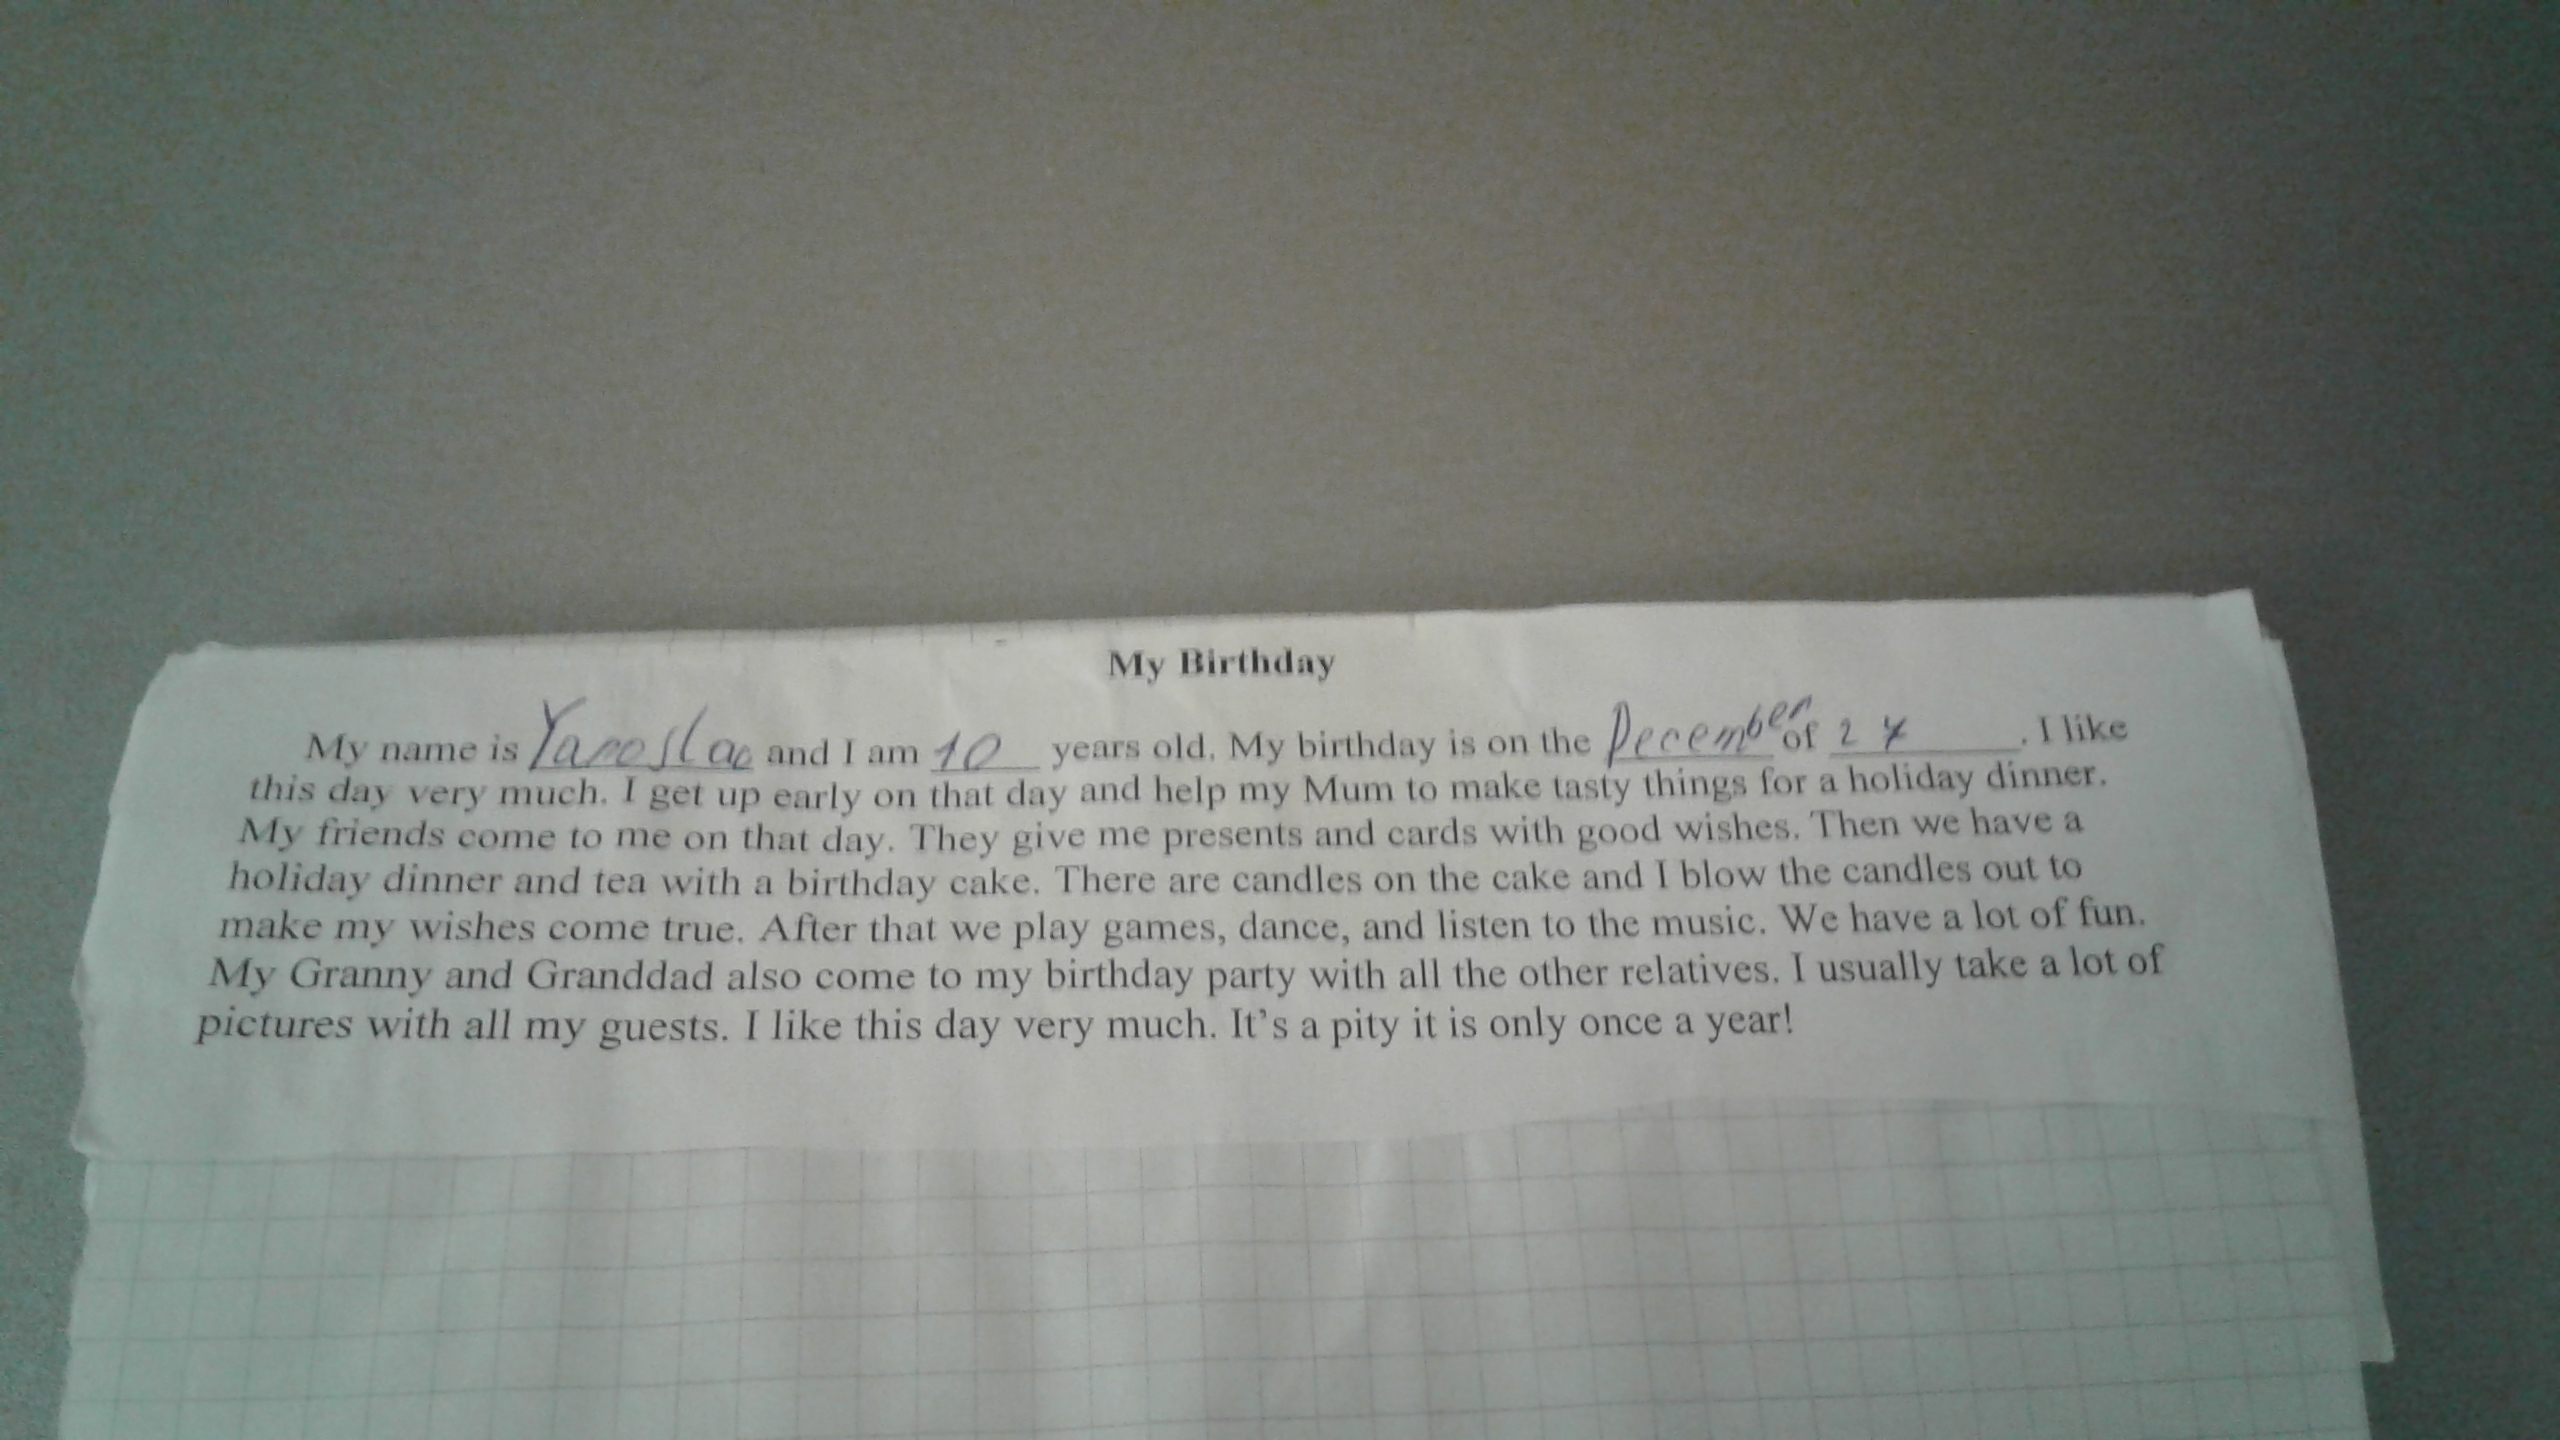 My Birthday
My name is Yaroslav and I am 10 years old. My birthday is on the December of 27. I like
this day very much. I get up early on that day and help my Mum to make tasty things for a holiday dinner.
My friends come to me on that day. They give me presents and cards with good wishes. Then we have a
holiday dinner and tea with a birthday cake. There are candles on the cake and I blow the candles out to
make my wishes come true. After that we play games, dance, and listen to the music. We have a lot of fun.
My Granny and Granddad also come to my birthday party with all the other relatives. I usually take a lot of
pictures with all my guests. I like this day very much. It's a pity it is only once a year!